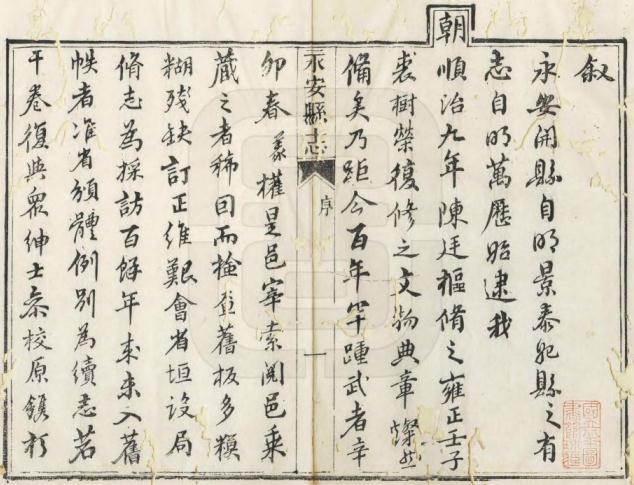 叙
永安開縣自明景泰始縣之有
志自明萬歷始逮我
朝順治九年陳廷樞脩之雍正壬子
裘樹榮復修之文物典章燦然
備矣乃距今百年罕踵武者辛
永安縣志
序
一
卯春 義權是邑宰索閱邑乘
藏之者稀因而檢查舊板多糢
糊殘缺訂正維艱會省垣設局
脩志為採訪百餘年來未入舊
帙者准省頒體例別為續志若
干卷復與眾紳士叅校原鐫訂